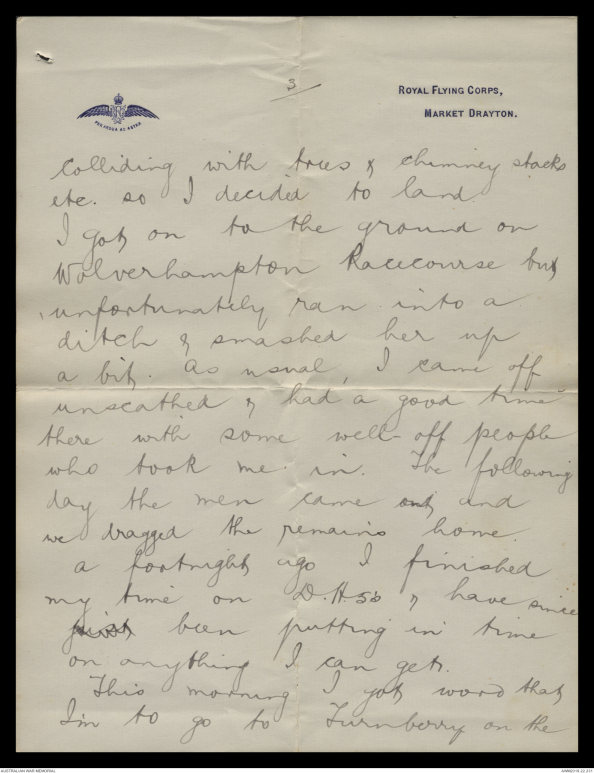 3
ROYAL FLYING CORPS,
MARKET DRAYTON.
PER ARDUA AD ASTRA
colliding with trees & chimney stacks
etc. so I decided to land.
I got on to the ground on
Wolverhampton Racecourse but
unfortunately ran into a
ditch & smashed her up
a bit. As usual, I came off
unscathed & had a good time
there with some well-off people
who took me in. The following
day the men came out and
we dragged the remains home.
a fortnight ago I finished
my time on D.H.5's & have since
just been putting in time
on anything I can get.
This morning I got word that
I'm to go to Turnberry on the
AUSTRALIAN WAR MEMORIAL